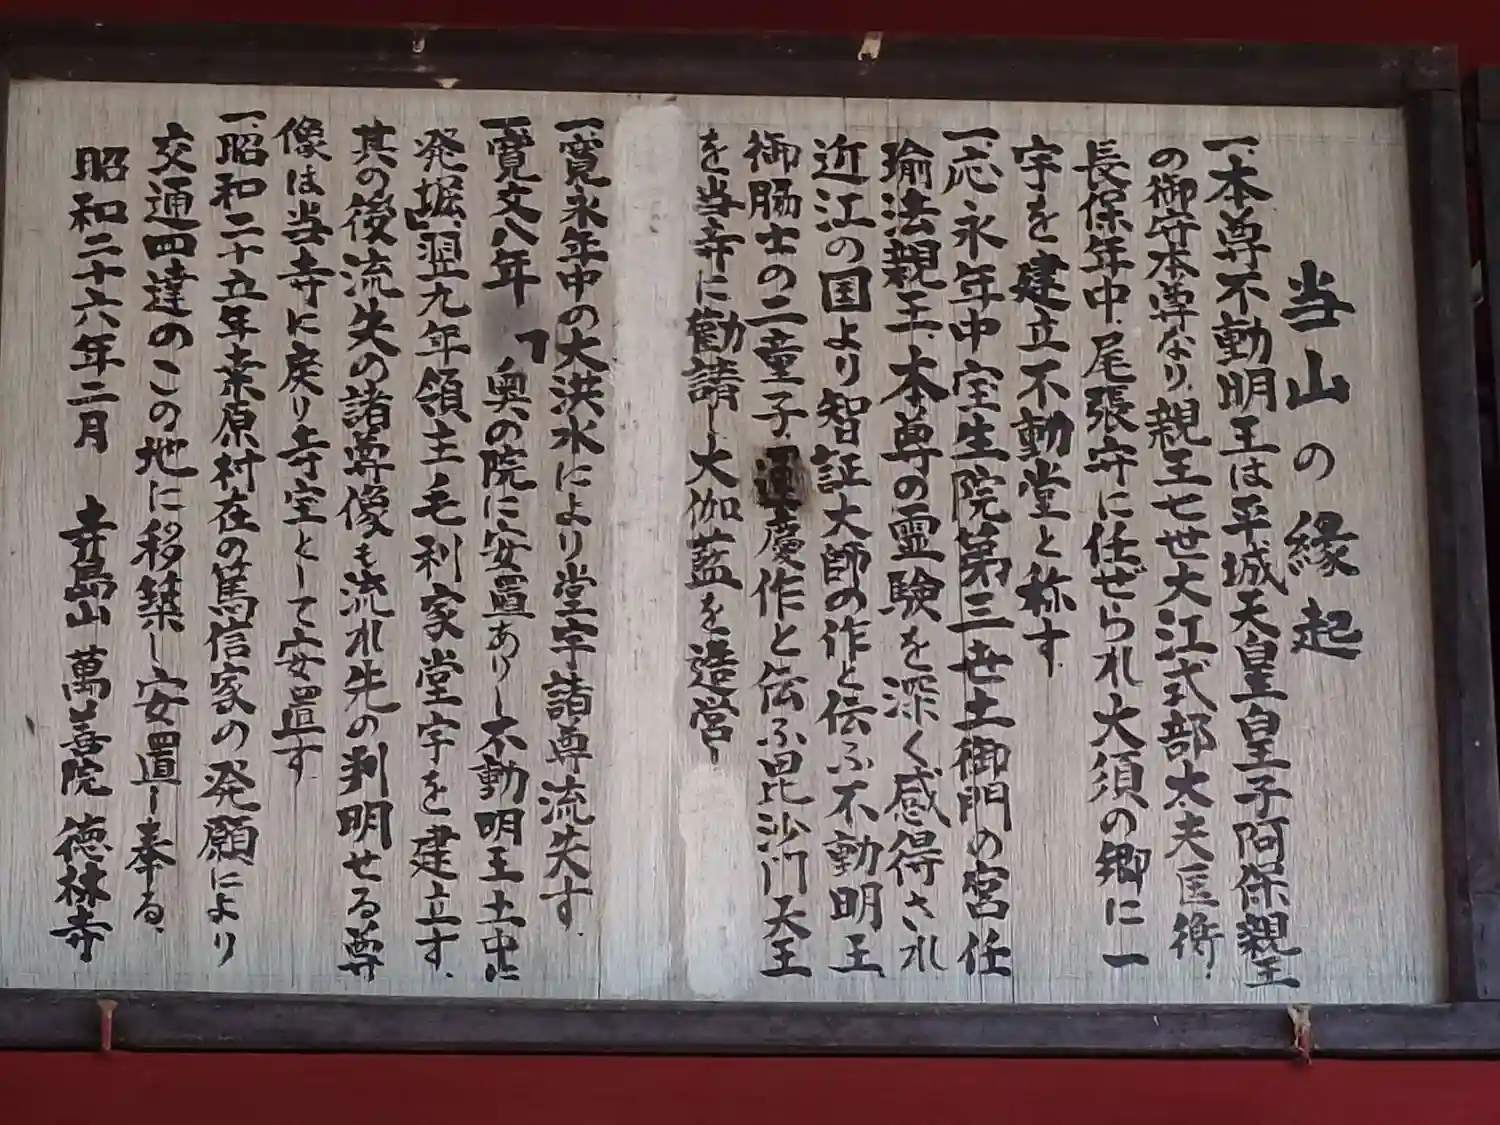 当山の縁起
一、本尊不動明王は平城天皇皇子阿保親王
の御守本尊なり、親王七世大江式部太夫匡衡、
長保年中、尾張守に任ぜられ大須の郷に一
宇を建立不動堂と称す
一、応永年中宝生院第三世土御門の宮任
瑜法親王、本尊の霊験を深く感得され
近江の国より智証大師の作と伝ふ不動明王
御脇士の二童子、運慶作と伝ふ毘沙門天王
を当寺に勧請し大伽藍を造営し
一、寛永年中の大洪水により堂宇諸尊流失す、
一、寛文八年「奥の院に安置ありし不動明王土中に
発堀」、翌九年領主毛利家堂宇を建立す、
其の後流失の諸尊像も流れ先の判明せる尊
像は当寺に戻り寺宝として安置す
一、昭和二十五年桑原村在の篤信家の発願により
交通四達のこの地に移築し安置し奉る、
昭和二十六年二月 寺島山 萬善院 徳林寺